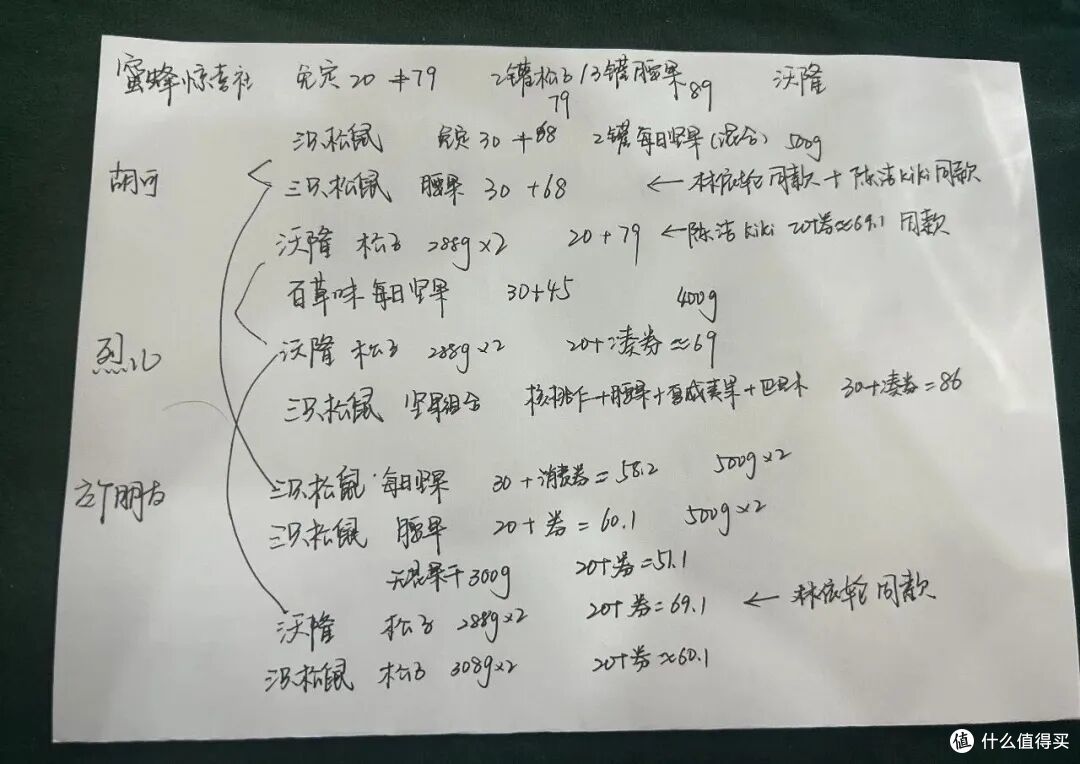 蜜蜂惊喜社 免定20+79 2罐松子/3罐腰果 沃隆
79 89
三只松鼠 免定30+68 2罐每日坚果(混合) 500g
胡可
三只松鼠 腰果 30+68 ← 林依轮同款+陈洁kiki同款
沃隆 松子 288g×2 20+79 ← 陈洁kiki 20+券≈69.1 同款
百草味 每日坚果 30+45 400g
烈儿
沃隆 松子 288g×2 20+凑券≈69
三只松鼠 坚果组合 核桃仁+腰果+夏威夷果+巴旦木 30+凑券=86
三只松鼠 每日坚果 30+消费券=58.2 500g×2
交个朋友
三只松鼠 腰果 20+券=60.1 500g×2
果干300g 20+券=51.1
沃隆 松子 288g×2 20+券=69.1 ← 林依轮同款
三只松鼠 松子 308g×2 20+券≈60.1
值 什么值得买